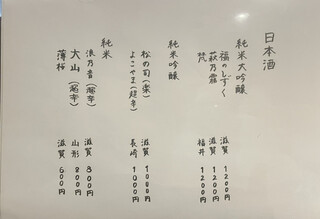 日本酒
純米大吟醸
福のしずく 滋賀 1200円
萩乃露 滋賀 1200円
梵 福井 1200円
純米吟醸
松の司(楽) 滋賀 1000円
よこやま(超辛) 長崎 1000円
純米
浪乃音(超辛) 滋賀 800円
大山(超辛) 山形 800円
薄桜 滋賀 600円